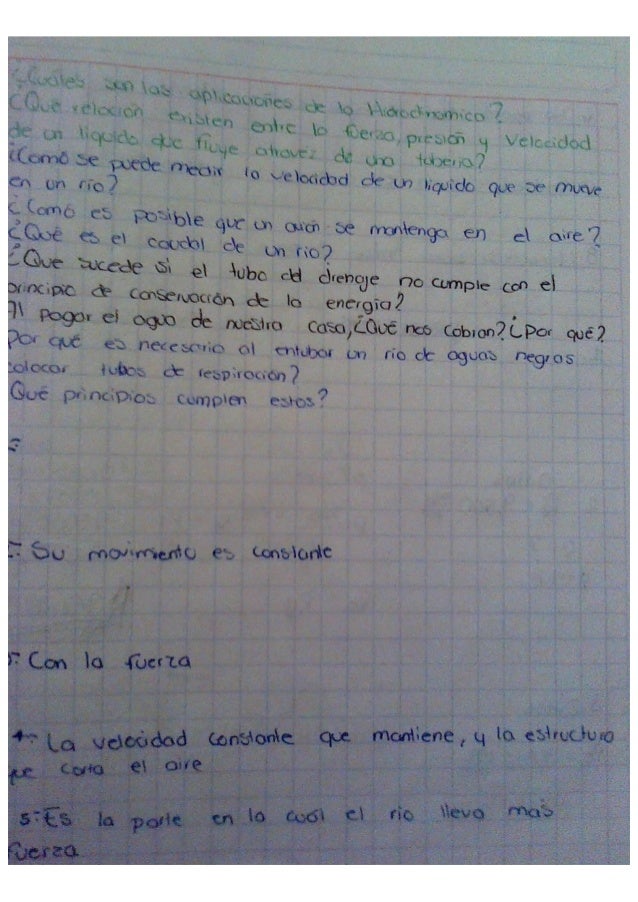 ¿Cuáles son las aplicaciones de la Hidrodinamica?
¿Que relación existen entre la fuerza, presión y velocidad
de un liquido que fluye atravez de una tuberia?
¿Como se puede medir la velocidad de un liquido que se mueve
en un río?
¿Como es posible que un avion se mantenga en el aire?
¿Qué es el caudal de un río?
¿Que sucede si el tubo del drenaje no cumple con el
principio de conservación de la energia?
Al pagar el agua de nuestra casa, ¿Qué nos cobran? ¿Por qué?
Por qué es necesario al entubar un río de aguas negras
colocar tubos de respiración?
Qué principios cumplen estos?
:- Su movimiento es constante
:- Con la fuerza
4:- La velocidad constante que mantiene, y la estructura
que corta el aire
5:- Es la parte en la cual el río lleva mas
fuerza